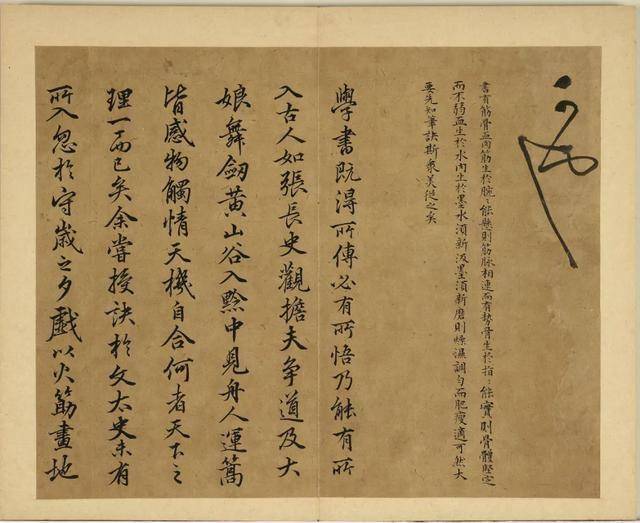 書有筋骨血肉筋生於腕〻能懸則筋脉相連而有勢骨生於指〻能實則骨體堅定
而不弱血生於水肉生於墨水須新汲墨須新磨則燥濕調匀而肥瘦適可然大
要先知筆訣斯衆美從之矣
學書既得所傳必有所悟乃能有所
入古人如張長史觀擔夫争道及大
娘舞劒黄山谷入黔中見舟人運篙
皆感物觸情天機自合何者天下之
理一而已矣余嘗授訣於文太史未有
所入忽於守歲之夕戲以火筯畫地